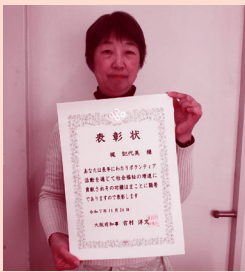 表彰状
様
あなたは長年にわたりボランティア
活動を通じて社会福祉の増進に
貢献されその功績はまことに顕著
でありますので表彰します
大阪府知事 吉村 洋文